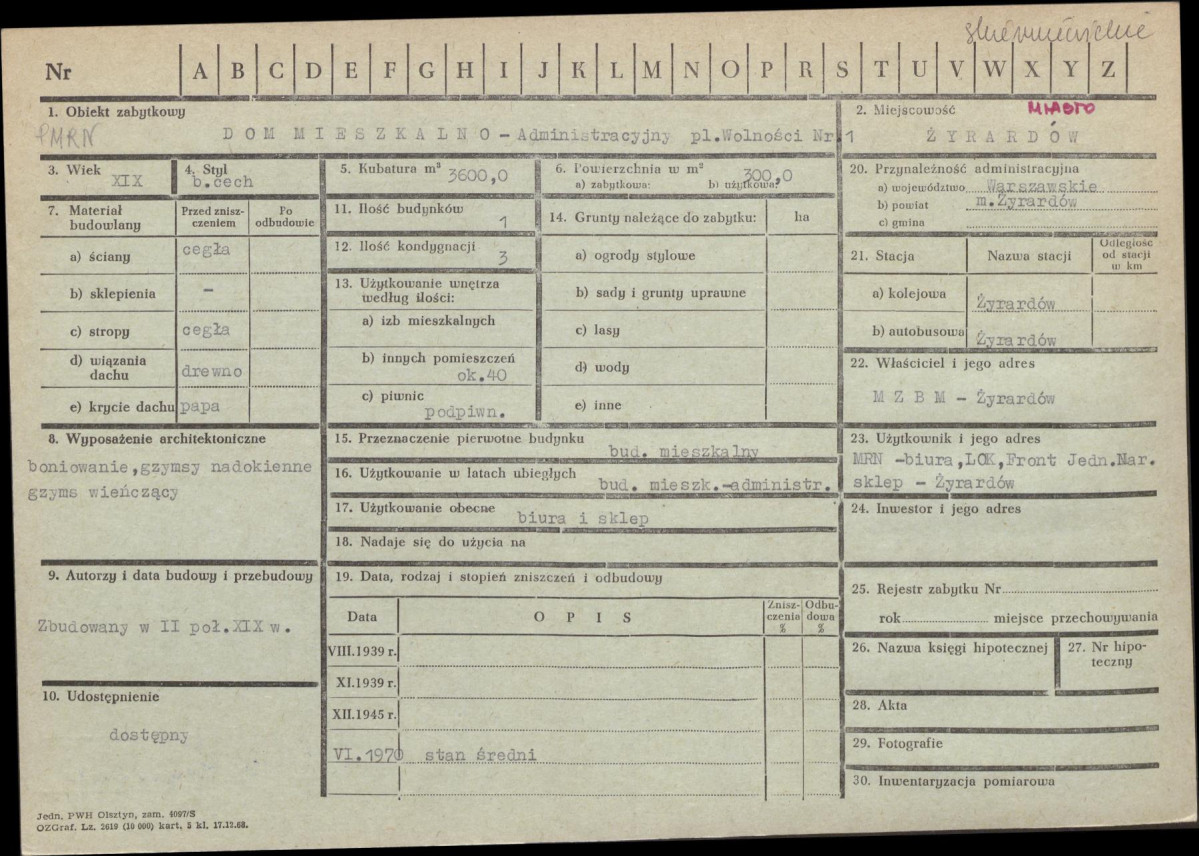 skierniewickie
Nr A B C D E F G H I J K L M N O P R S T U V W X Y Z
1. Obiekt zabytkowy
PMRN
DOM MIESZKALNO - Administracyjny pl.Wolności Nr 1
2. Miejscowość
MIASTO
ŻYRARDÓW
3. Wiek
XIX
4. Styl
b.cech
5. Kubatura m³
3600,0
6. Powierzchnia w m²
300,0
a) zabytkowa: b) użytkowa:
20. Przynależność administracyjna
a) województwo Warszawskie
b) powiat m.Żyrardów
c) gmina
7. Materiał budowlany
Przed zniszczeniem
Po odbudowie
a) ściany cegła
b) sklepienia -
c) stropy cegła
d) wiązania dachu drewno
e) krycie dachu papa
11. Ilość budynków
1
12. Ilość kondygnacji
3
13. Użytkowanie wnętrza według ilości:
a) izb mieszkalnych
b) innych pomieszczeń
ok.40
c) piwnic
podpiwn.
14. Grunty należące do zabytku: ha
a) ogrody stylowe
b) sady i grunty uprawne
c) lasy
d) wody
e) inne
21. Stacja Nazwa stacji Odległość od stacji w km
a) kolejowa Żyrardów
b) autobusowa Żyrardów
22. Właściciel i jego adres
MZBM - Żyrardów
8. Wyposażenie architektoniczne
boniowanie,gzymsy nadokienne
gzyms wieńczący
15. Przeznaczenie pierwotne budynku
bud. mieszkalny
16. Użytkowanie w latach ubiegłych
bud. mieszk.-administr.
17. Użytkowanie obecne
biura i sklep
18. Nadaje się do użycia na
23. Użytkownik i jego adres
MRN -biura,LOK,Front Jedn.Nar.
sklep - Żyrardów
24. Inwestor i jego adres
9. Autorzy i data budowy i przebudowy
Zbudowany w II poł.XIX w.
10. Udostępnienie
dostępny
19. Data, rodzaj i stopień zniszczeń i odbudowy
Data OPIS Zniszczenia % Odbudowa %
VIII.1939 r.
XI.1939 r.
XII.1945 r.
VI.1970 stan średni
25. Rejestr zabytku Nr
rok miejsce przechowywania
26. Nazwa księgi hipotecznej
27. Nr hipoteczny
28. Akta
29. Fotografie
30. Inwentaryzacja pomiarowa
Jedn. PWH Olsztyn, zam. 4097/S
OZGraf. Lz. 2619 (10 000) kart. 5 kl. 17.12.68.